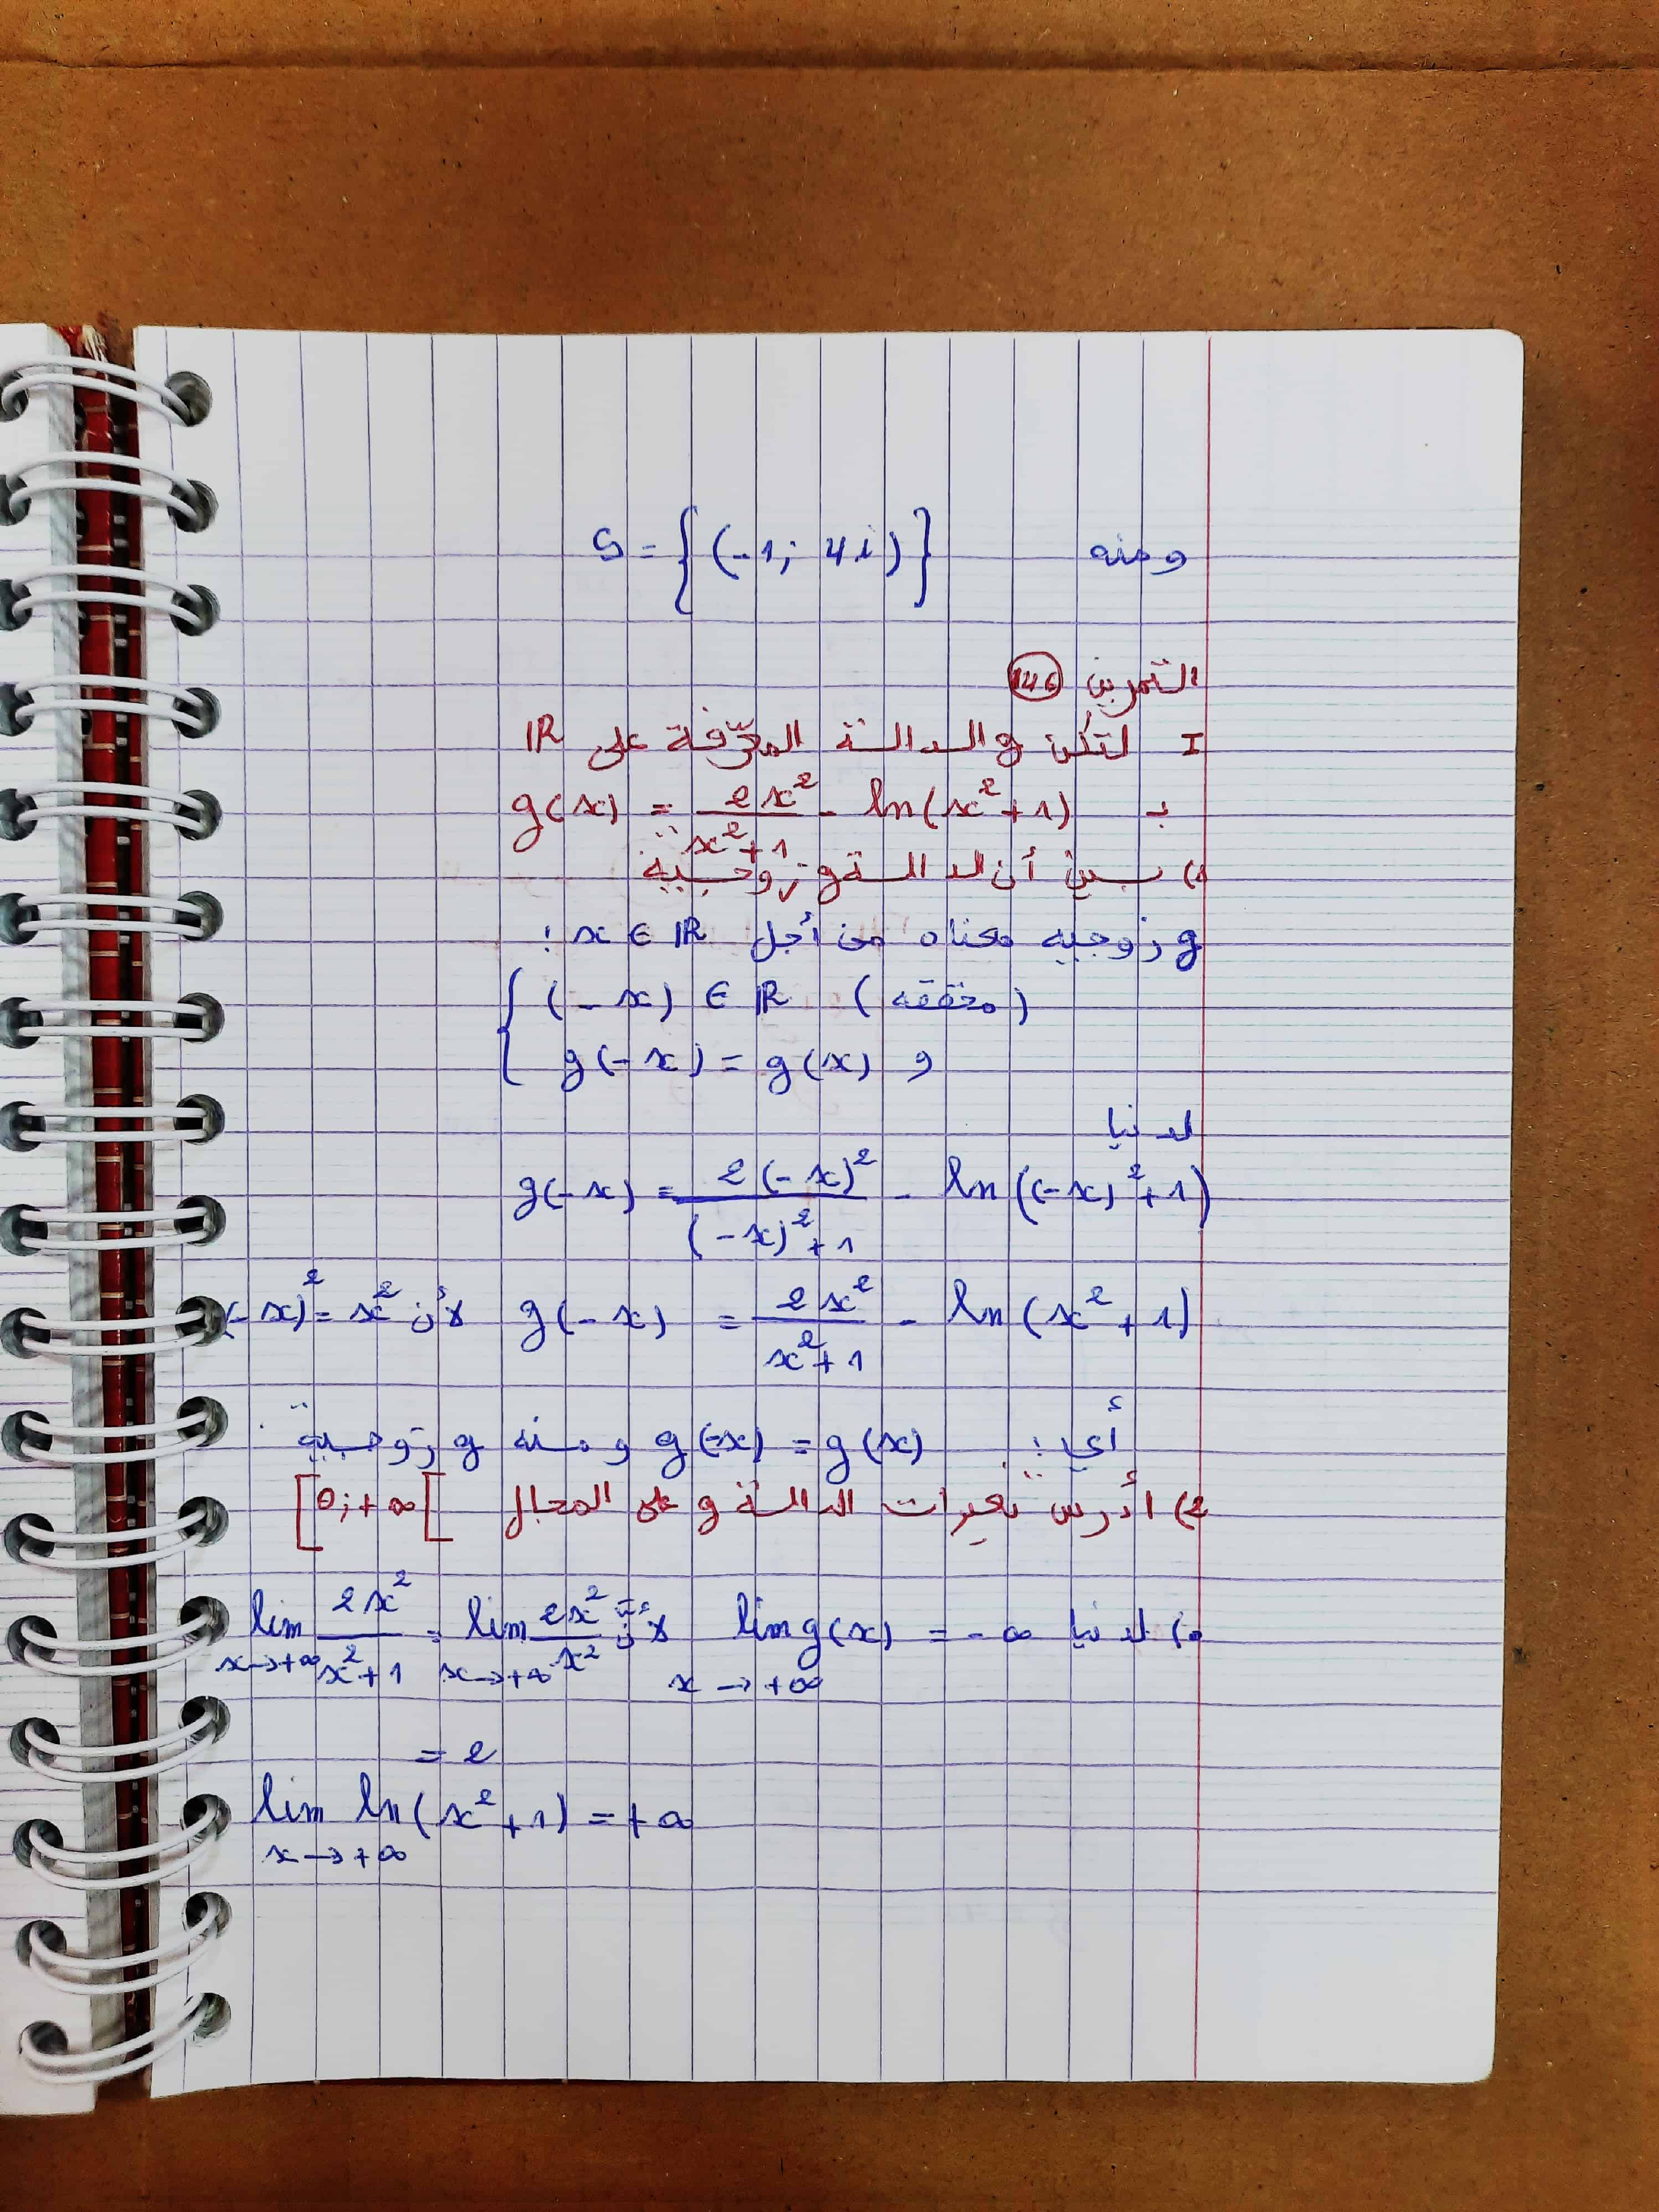 ومنه S = { (-1; 4i) }
التمرين 146
I لتكن g الدالة المعرّفة على IR
بـ g(x) = 2x²/(x²+1) - ln(x²+1)
1) بين أن الدالة g زوجية
g زوجيه معناه من أجل x ∈ IR :
{ (-x) ∈ IR (محققه)
g(-x) = g(x) و
لدنيا
g(-x) = 2(-x)²/((-x)²+1) - ln((-x)²+1)
g(-x) = 2x²/(x²+1) - ln(x²+1) لأن (-x)² = x²
أي : g(-x) = g(x) ومنه g زوجية
2) أدرس تغيرات الدالة g على المجال [0;+∞[
لدنيا lim g(x) = -∞ x→+∞ لأن lim 2x²/(x²+1) x→+∞ = lim 2x²/x² x→+∞
= 2
lim ln(x²+1) = +∞
x→+∞